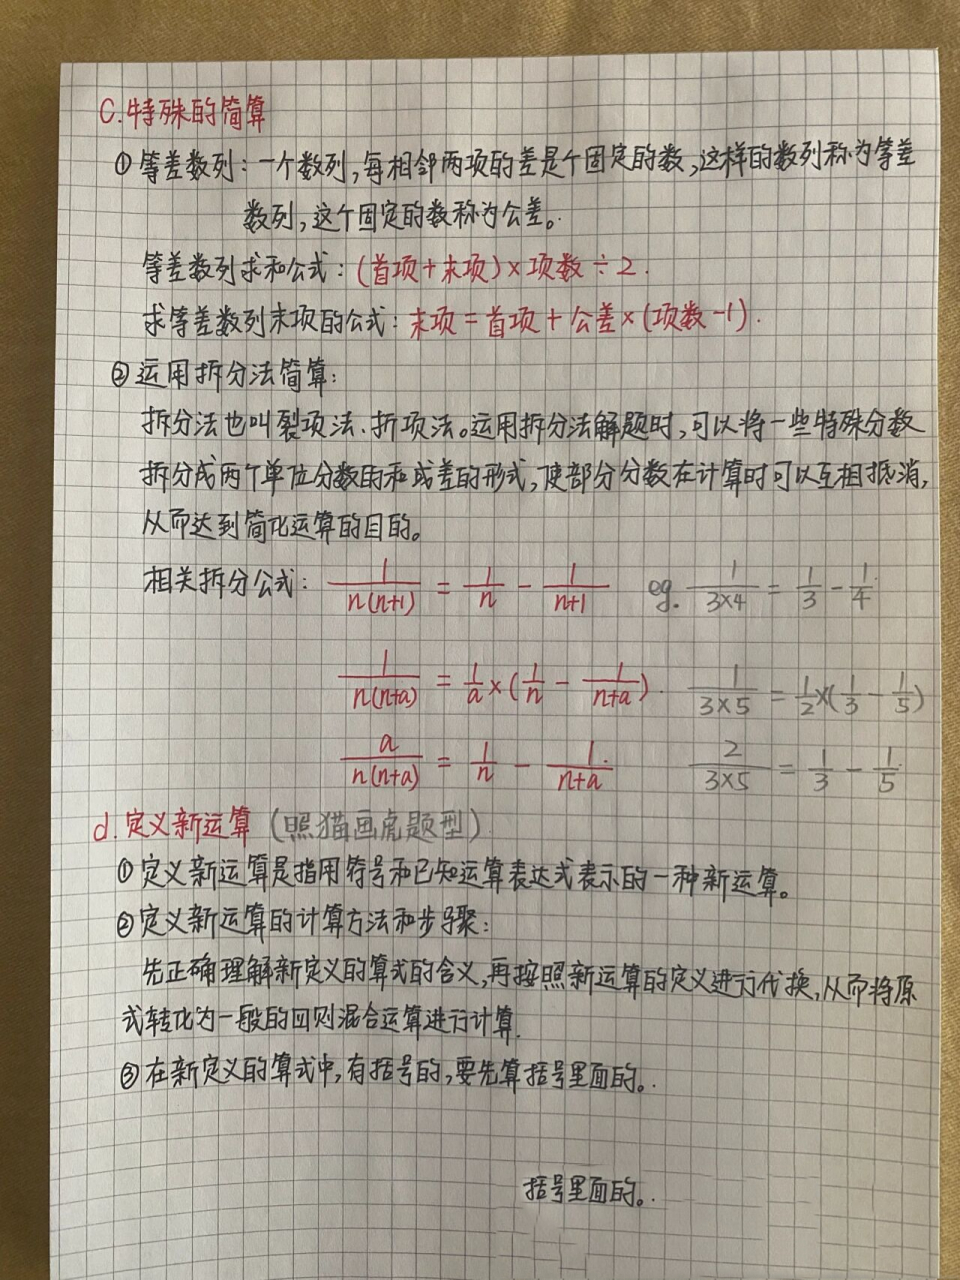 C.特殊的简算
①等差数列：一个数列，每相邻两项的差是个固定的数，这样的数列称为等差
数列，这个固定的数称为公差。
等差数列求和公式：(首项+末项)×项数÷2.
求等差数列末项的公式：末项=首项+公差×(项数-1).
②运用拆分法简算：
拆分法也叫裂项法、折项法。运用拆分法解题时，可以将一些特殊分数
拆分成两个单位分数的和或差的形式，使部分分数在计算时可以互相抵消，
从而达到简化运算的目的。
相关拆分公式： 1/n(n+1) = 1/n - 1/n+1 eg. 1/3×4 = 1/3 - 1/4
1/n(n+a) = 1/a×(1/n - 1/n+a). 1/3×5 = 1/2×(1/3 - 1/5)
a/n(n+a) = 1/n - 1/n+a 2/3×5 = 1/3 - 1/5
d.定义新运算（照猫画虎题型）
①定义新运算是指用符号和已知运算表达式表示的一种新运算。
②定义新运算的计算方法和步骤：
先正确理解新定义的算式的含义，再按照新运算的定义进行代换，从而将原
式转化为一般的四则混合运算进行计算.
③在新定义的算式中，有括号的，要先算括号里面的。
括号里面的。